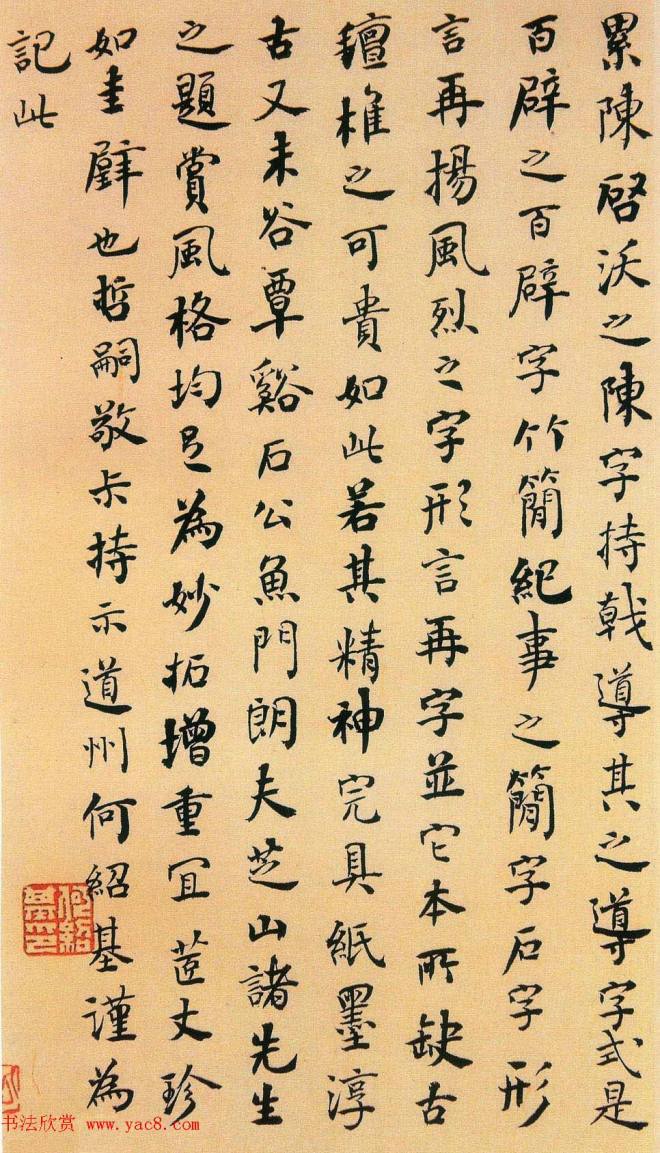 累陳啓沃之陳字持戟導其之導字式是
百辟之百辟字竹簡紀事之簡字石字形
言再揚風烈之字形言再字並它本所缺古
氊椎之可貴如此若其精神完具紙墨淳
古又未谷覃谿石公魚門朗夫芝山諸先生
之題賞風格均足為妙拓增重宜茝丈珍
如圭璧也哲嗣敬叔持示道州何紹基謹為
記此
何紹基印
书法欣赏 www.yac8.com